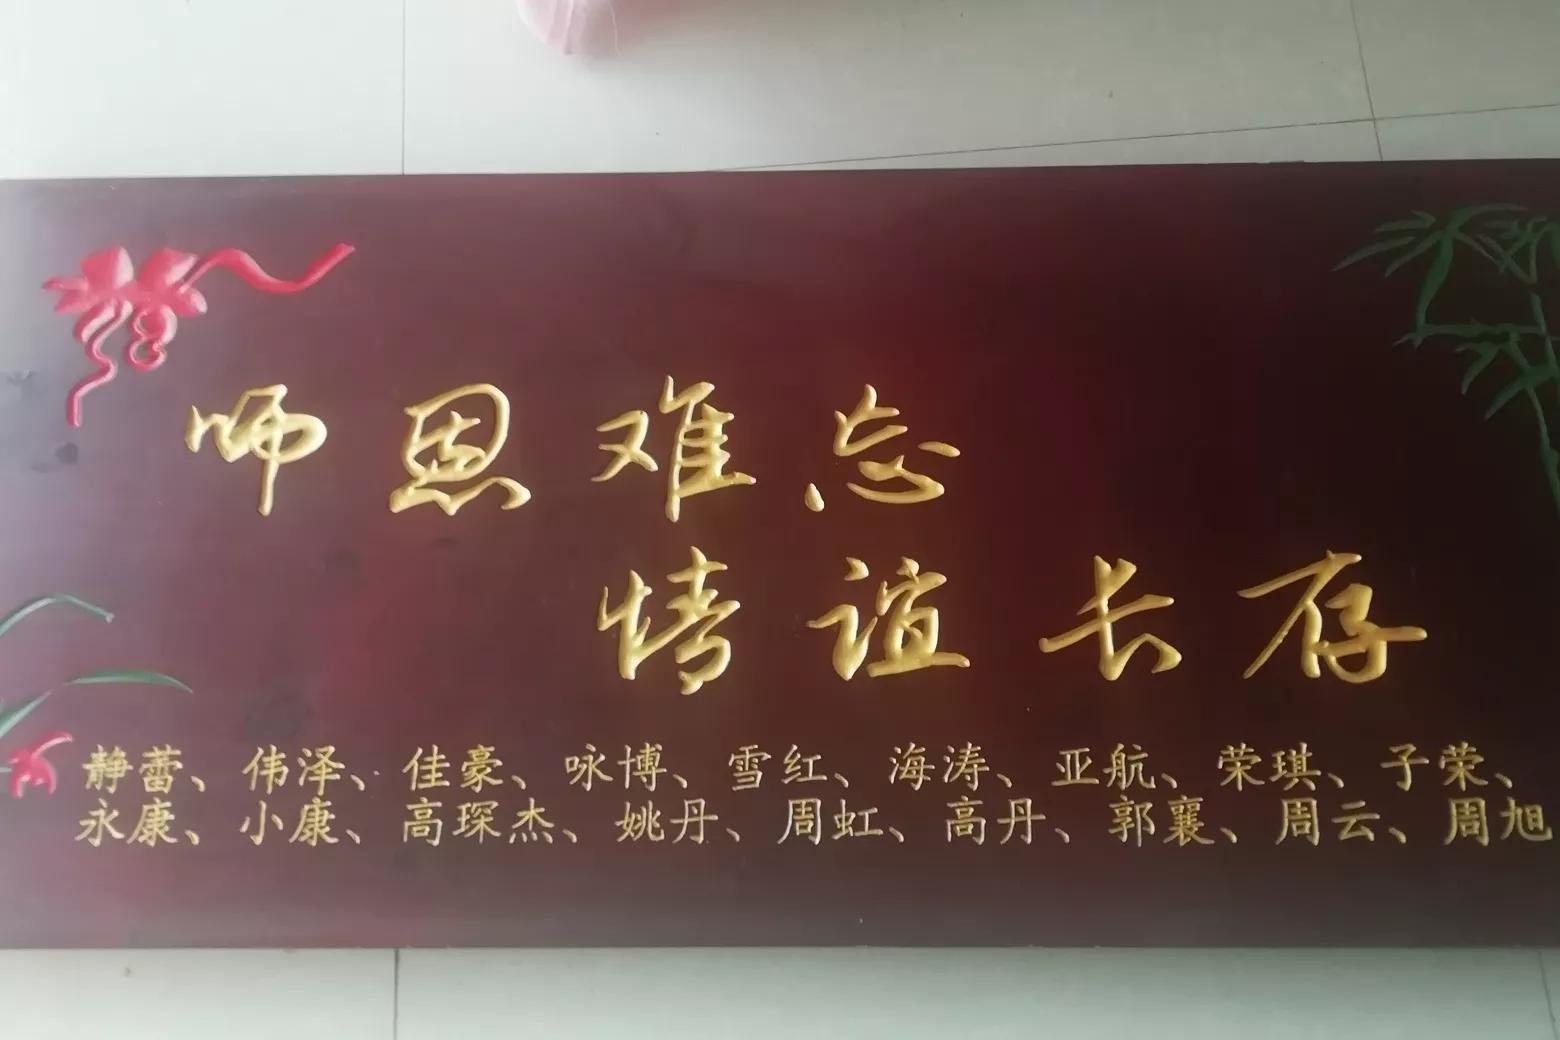 师恩难忘
情谊长存
静蕾、伟泽、佳豪、咏博、雪红、海涛、亚航、荣琪、子荣、
永康、小康、高琛杰、姚丹、周虹、高丹、郭襄、周云、周旭